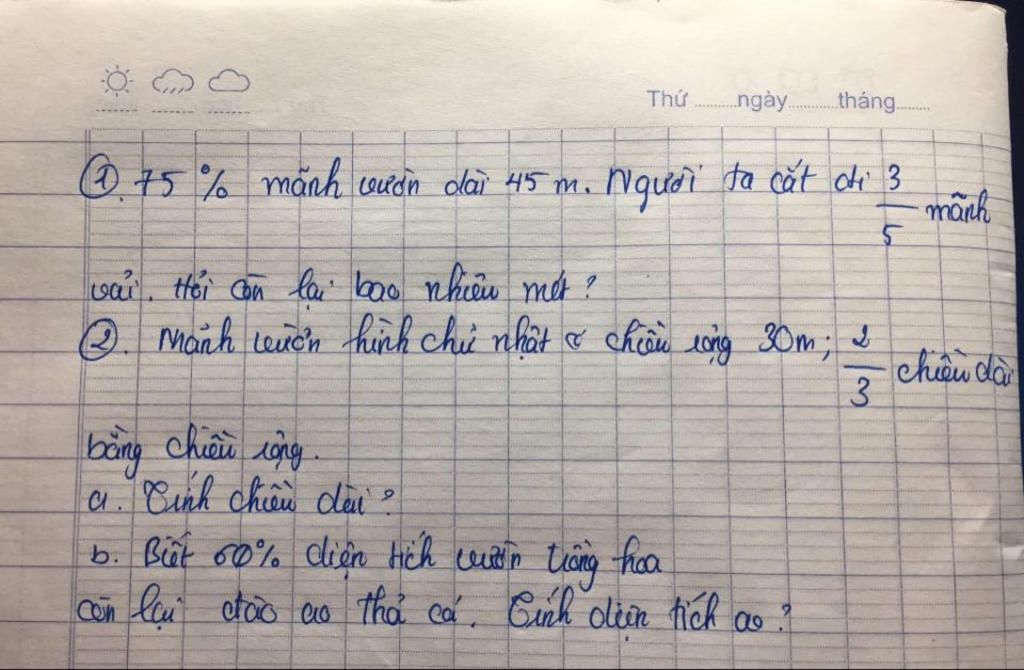 Thứ ........ngày.........tháng.......
①. 75 % mảnh vườn dài 45 m. Người ta cắt đi 3/5 mảnh
vải. Hỏi còn lại bao nhiêu mét ?
②. Mảnh vườn hình chữ nhật có chiều rộng 30m; 2/3 chiều dài
bằng chiều rộng.
a. Tính chiều dài ?
b. Biết 60% diện tích vườn trồng hoa
còn lại đào ao thả cá. Tính diện tích ao ?